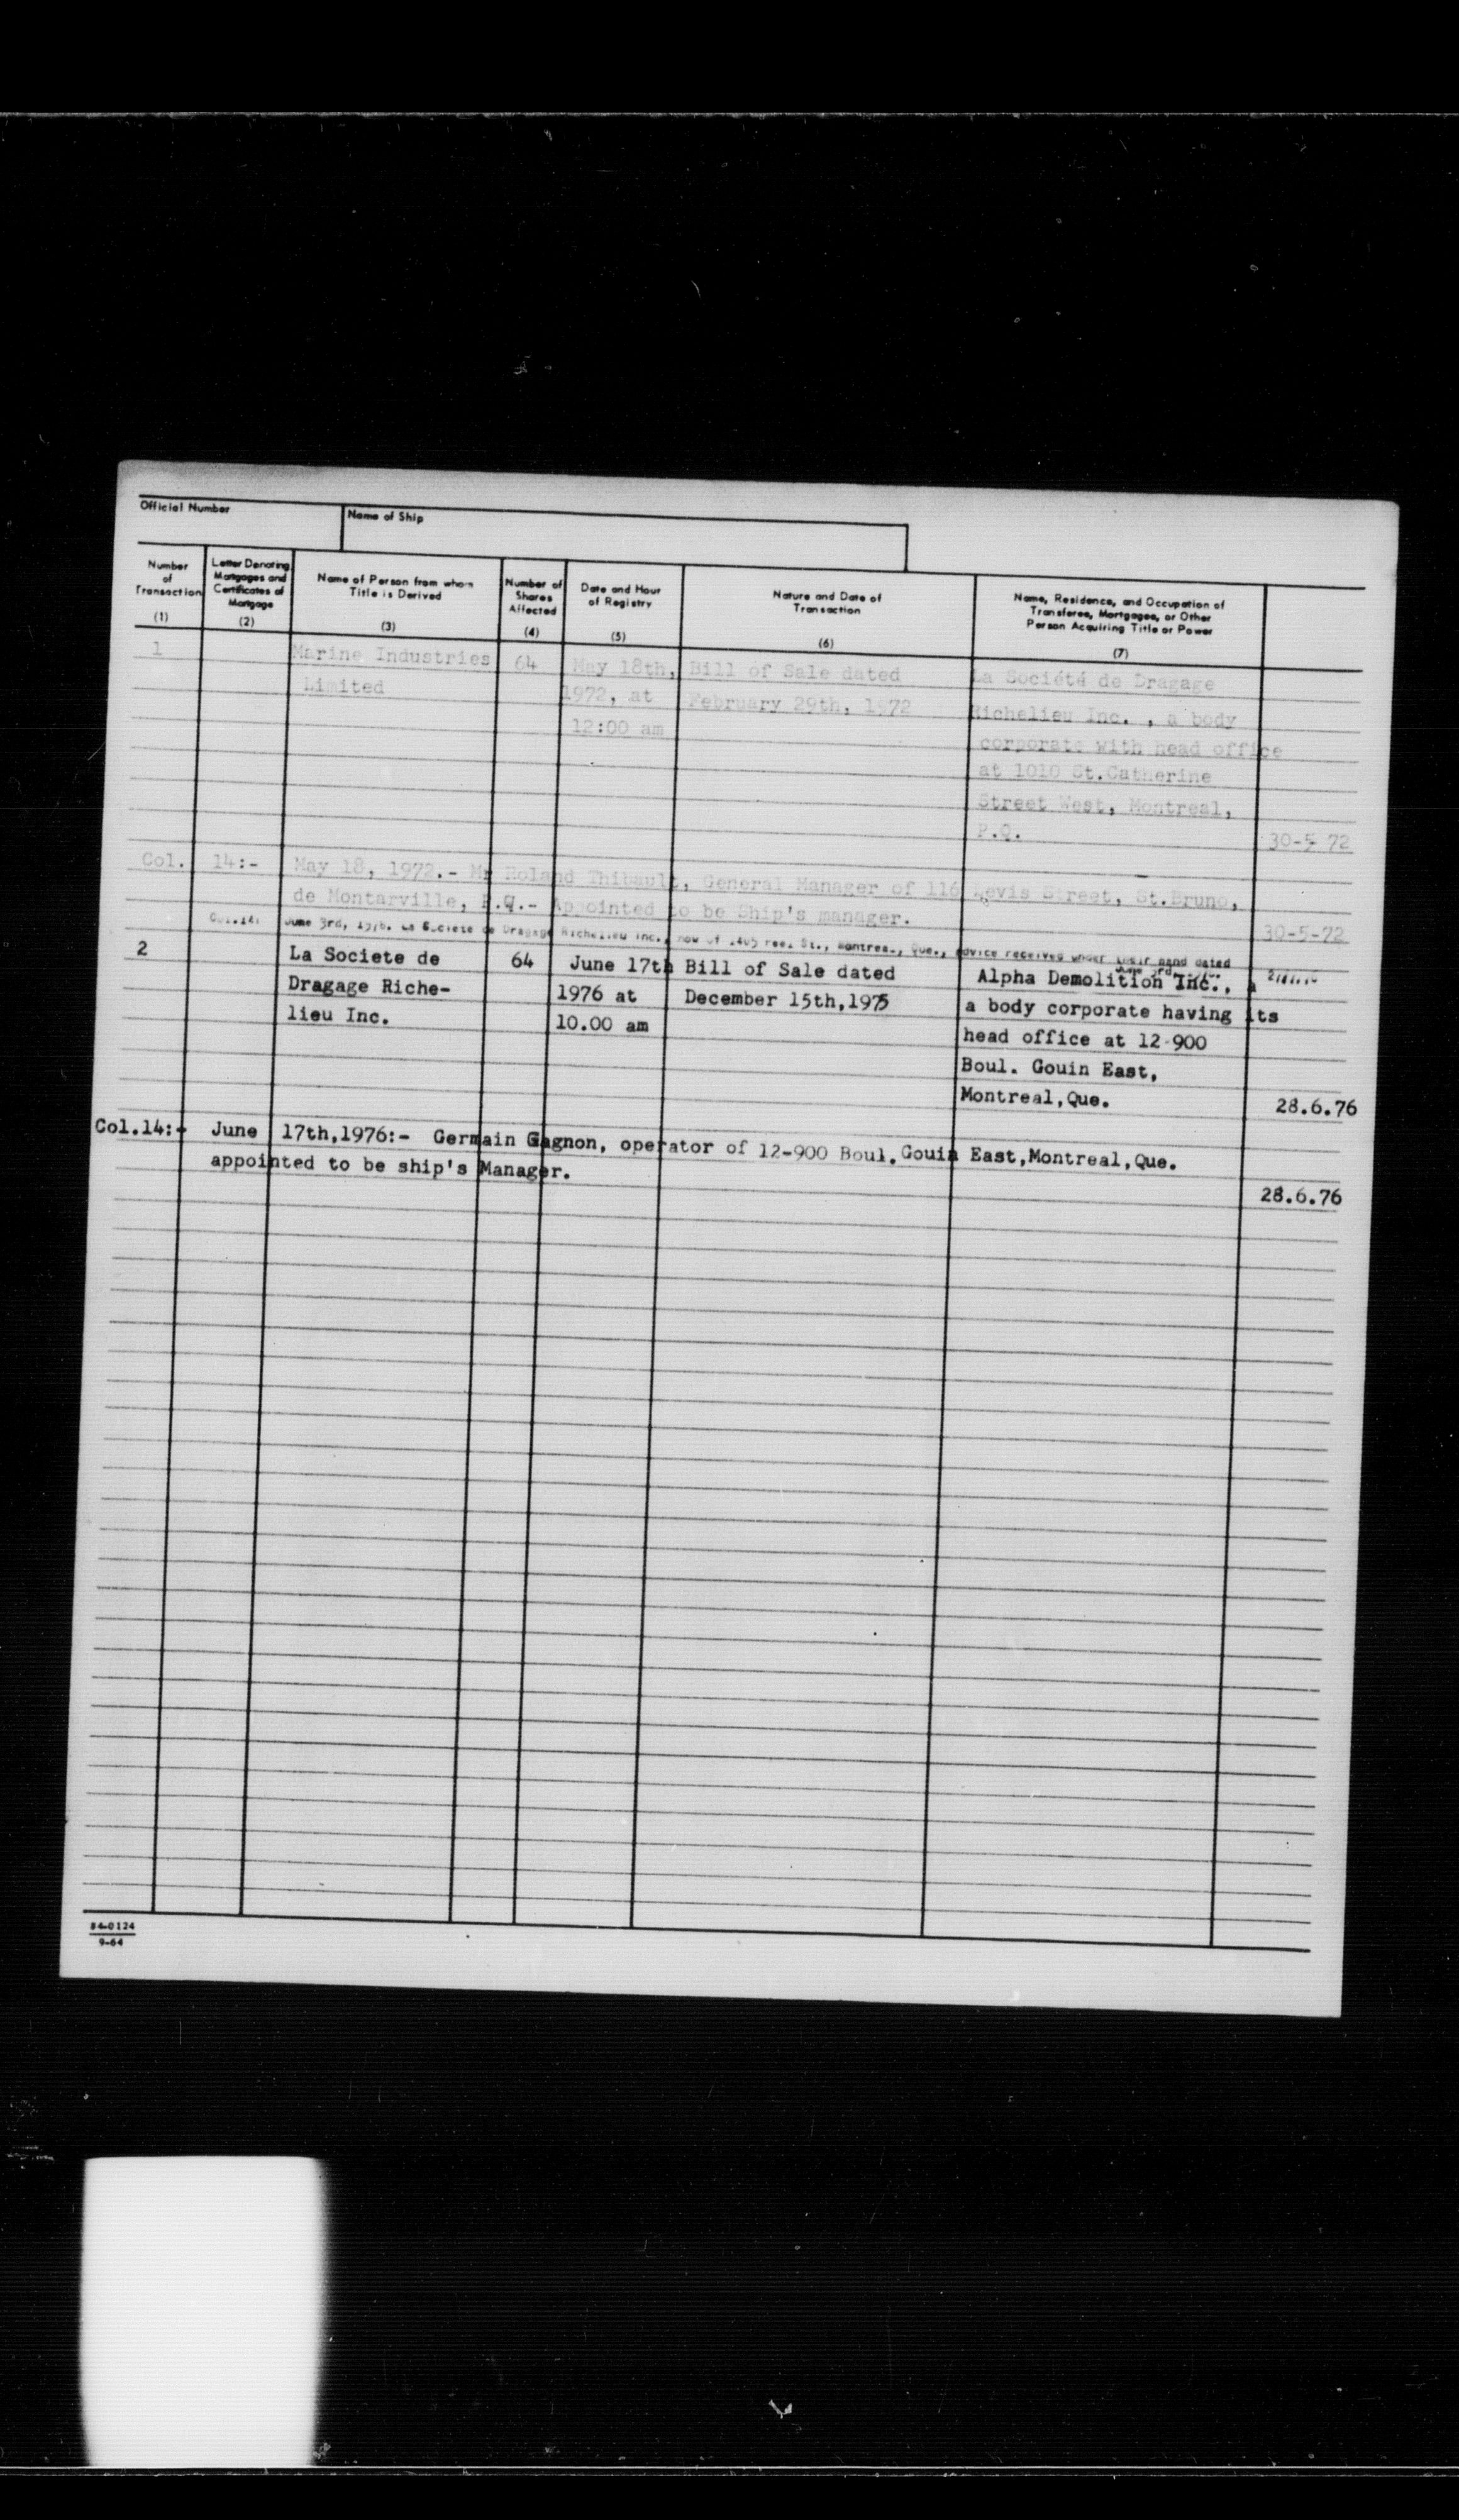 Official Number
Name of Ship
Number of Transaction (1)
Letter Denoting Mortgages and Certificates of Mortgage (2)
Name of Person from whom Title is Derived (3)
Number of Shares Affected (4)
Date and Hour of Registry (5)
Nature and Date of Transaction (6)
Name, Residence, and Occupation of Transferee, Mortgagee, or Other Person Acquiring Title or Power (7)
1 Marine Industries 64 May 18th, Bill of Sale dated La Société de Dragage
Limited 1972, at February 29th, 1972 Richelieu Inc. , a body
12:00 am corporate with head office
at 1010 St.Catherine
Street West, Montreal,
P.Q. 30-5 72
Col. 14:- May 18, 1972.- Mr Roland Thibault, General Manager of 116 Levis Street, St.Bruno,
de Montarville, P.Q.- Appointed to be Ship's manager.
30-5-72
Col.14: June 3rd, 1976. La Societe de Dragage Richelieu Inc., now of Peel St., Montreal, Que., advice received under their hand dated
June 3rd,
2 La Societe de 64 June 17th Bill of Sale dated Alpha Demolition Inc., a
Dragage Riche- 1976 at December 15th,1975 a body corporate having its
lieu Inc. 10.00 am head office at 12-900
Boul. Gouin East,
Montreal,Que. 28.6.76
Col.14:- June 17th,1976:- Germain Gagnon, operator of 12-900 Boul.Gouin East,Montreal,Que.
appointed to be ship's Manager.
28.6.76
84-0124
9-64